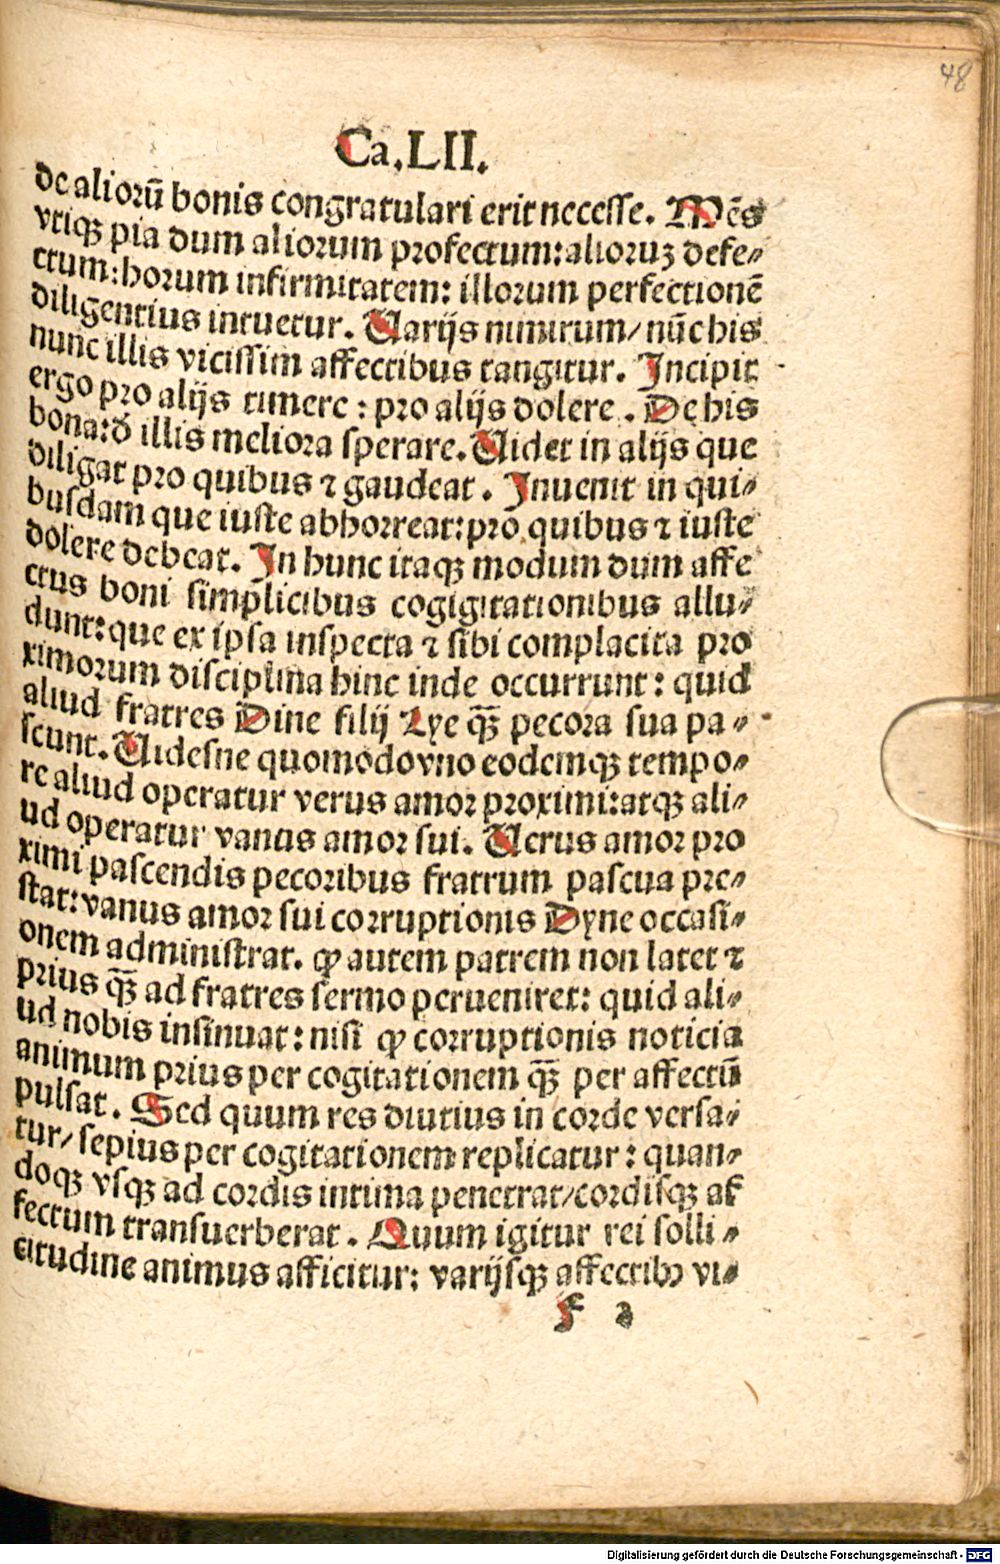 48
Ca.LII.
de aliorū bonis congratulari erit necesse. Mēs
vtiqꝫ pia dum aliorum profectum: alioruꝫ defe⸗
ctum: horum infirmitatem: illorum perfectionē
diligentius intuetur. Varijs nimirum/ nūc his
nunc illis vicissim affectibus tangitur. Incipit
ergo pro alijs timere: pro alijs dolere. De his
bona: đ illis meliora sperare. Videt in alijs que
diligat pro quibus ⁊ gaudeat. Inuenit in qui⸗
busdam que iuste abhorreat: pro quibus ⁊ iuste
dolere debeat. In hunc itaqꝫ modum dum affe
ctus boni simplicibus cogigitationibus allu⸗
dunt: que ex ipsa inspecta ⁊ sibi complacita pro
ximorum disciplina hinc inde occurrunt: quid
aliud fratres Dine filij Lye qꝫ̄ pecora sua pa⸗
scunt. Videsne quomodo vno eodemqꝫ tempo⸗
re aliud operatur verus amor proximi: atqꝫ ali⸗
ud operatur vanus amor sui. Verus amor pro
ximi pascendis pecoribus fratrum pascua pre⸗
stat: vanus amor sui corruptionis Dyne occasi⸗
onem administrat. ꝙ autem patrem non latet ⁊
prius qꝫ̄ ad fratres sermo perueniret: quid ali⸗
ud nobis insinuat: nisi ꝙ corruptionis noticia
animum prius per cogitationem qꝫ̄ per affectū
pulsat. Sed quum res diutius in corde versa⸗
tur/ sepius per cogitationem replicatur: quan⸗
doqꝫ vsqꝫ ad cordis intima penetrat/ cordisqꝫ af
fectum transuerberat. Quum igitur rei solli⸗
citudine animus afficitur: varijsqꝫ affectibꝰ vi⸗
f 2
Digitalisierung gefördert durch die Deutsche Forschungsgemeinschaft - DFG